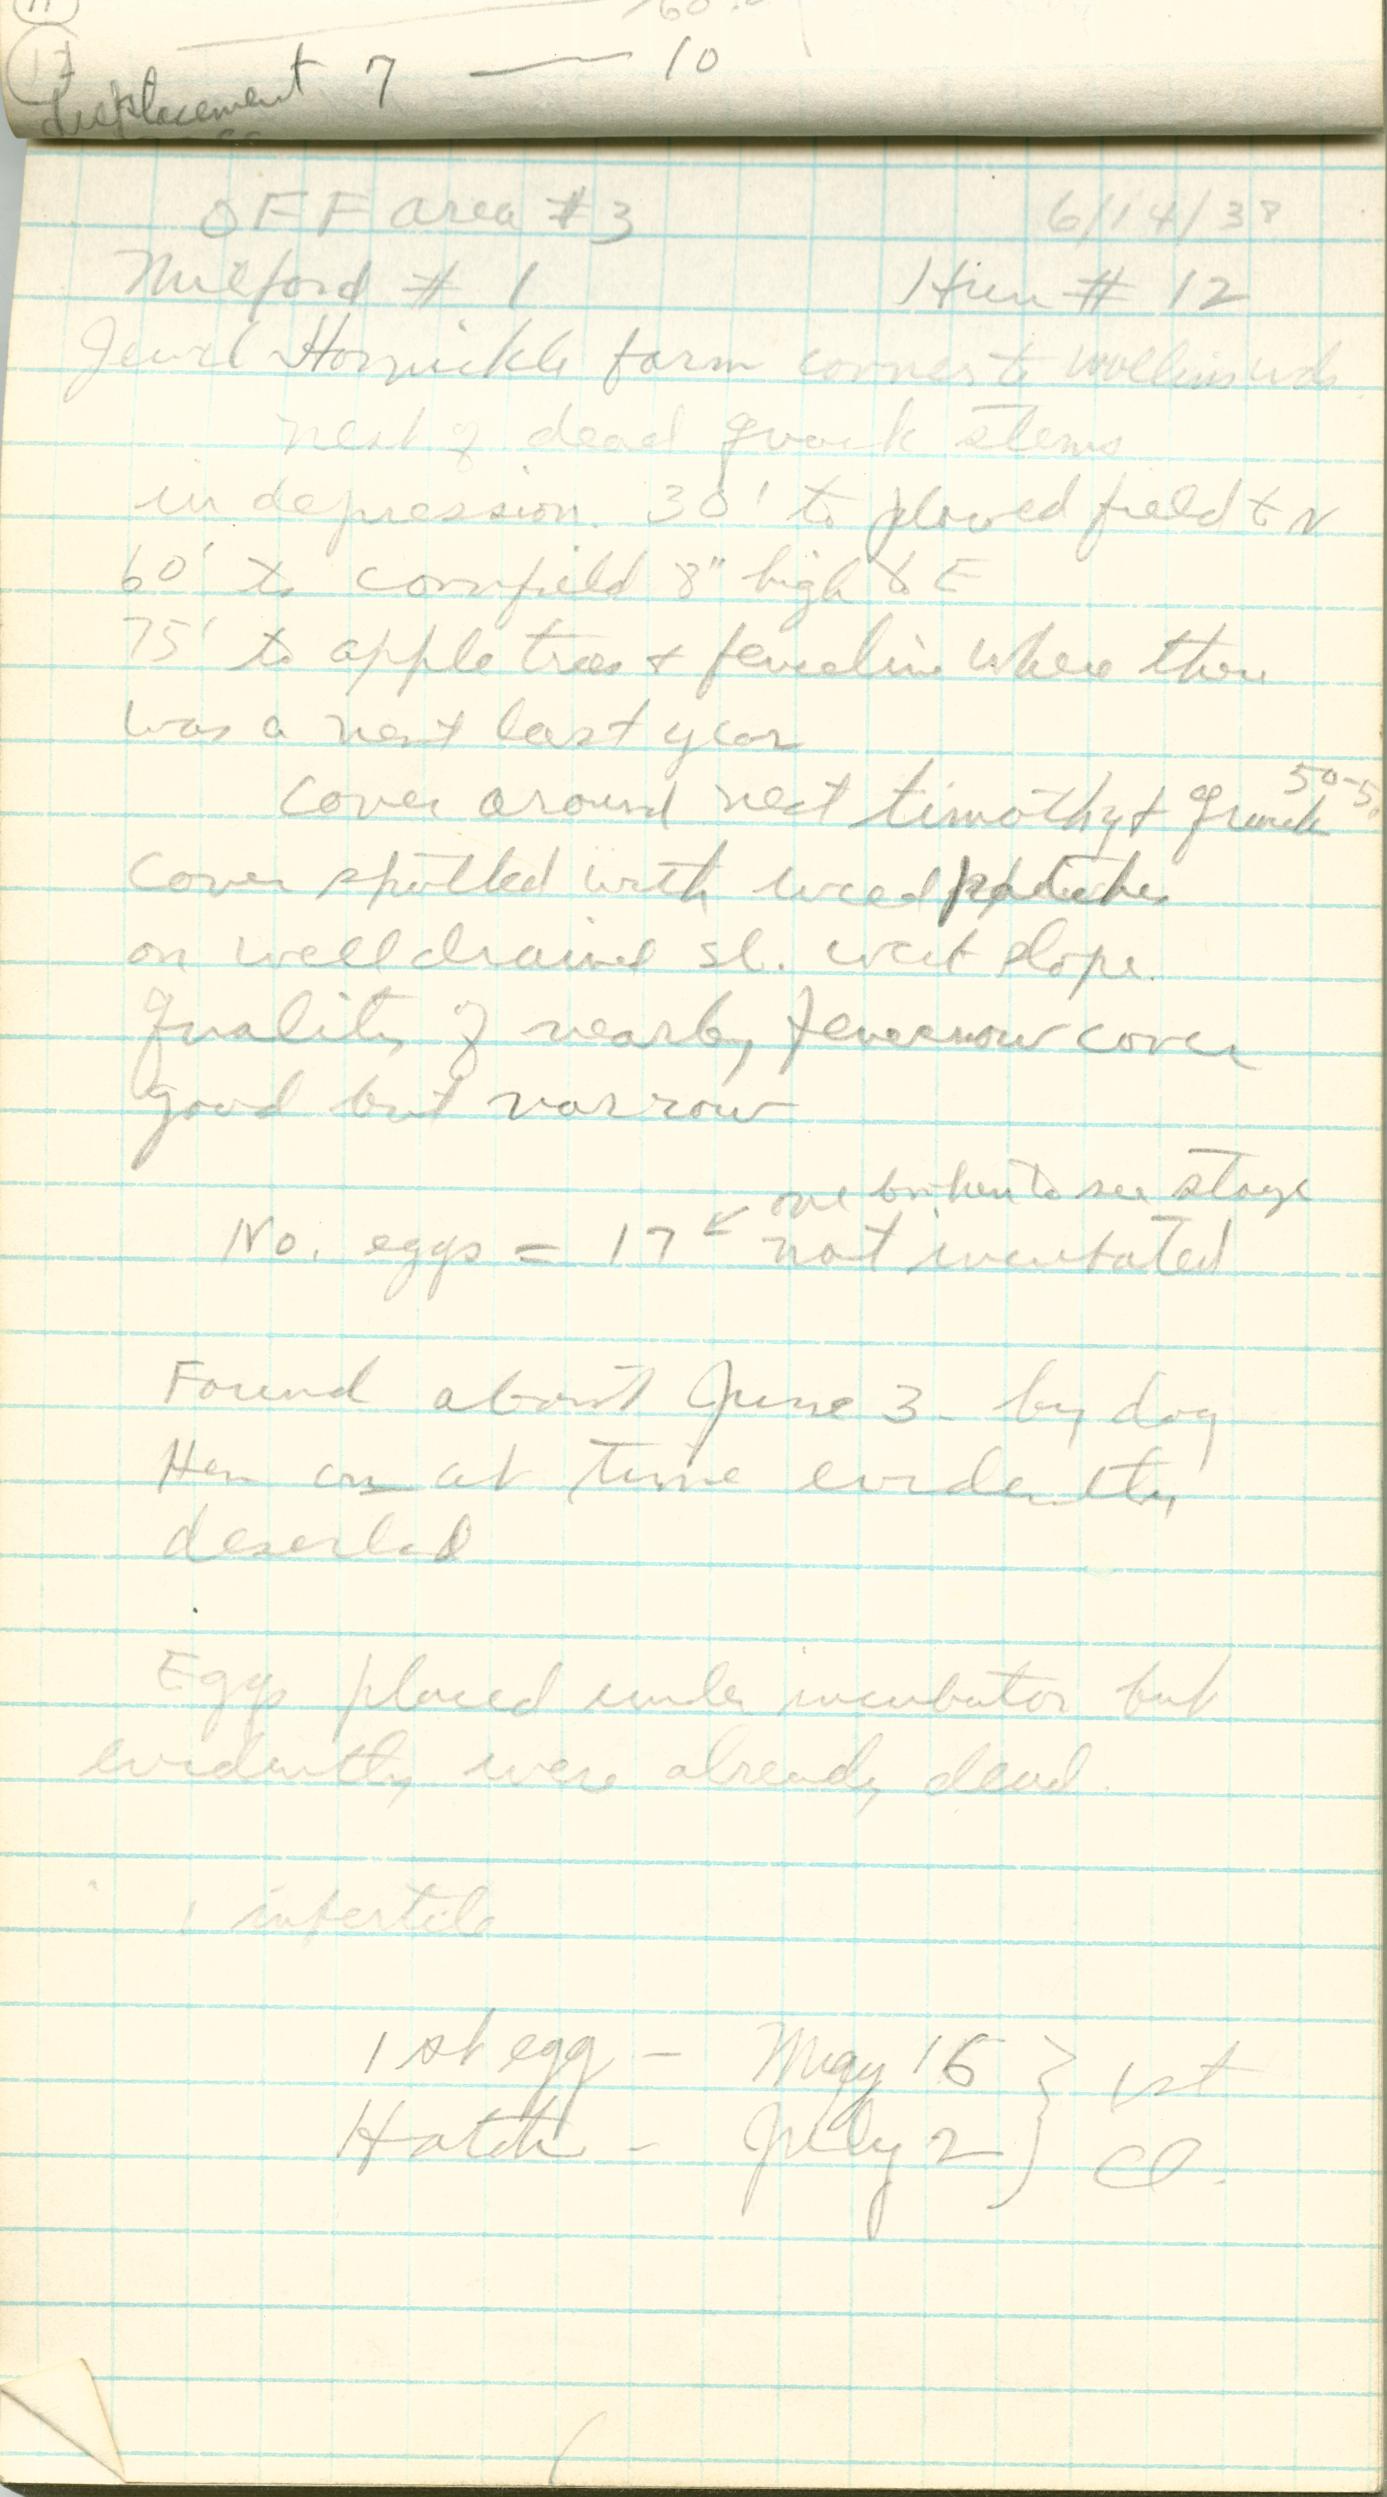 displacement 7 — 10
OFF area #3 6/14/38
Milford # 1 Hun # 12
Jewel farm corner to
nest of dead quack stems
in depression. 30' to plowed field to N
60' to cornfield 8" high to E
75' to apple trees + fenceline where there
was a nest last year
50-5
cover around nest timothy + quack
cover spotted with weed patches
on well drained sl. west slope.
Quality of nearby fencerow cover
good but narrow
one broken to see stage
No. eggs = 17 not incubated
Found about June 3 - by dog
Hen on at time evidently
deserted
Eggs placed under incubator but
evidently were already dead.
1 infertile
1st egg - May 16 } 1st
Hatch - July 2 } Cl.